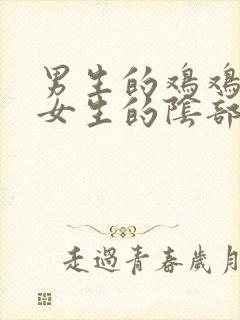 男生的鸡鸡
女生的陰部
走過青春歲月